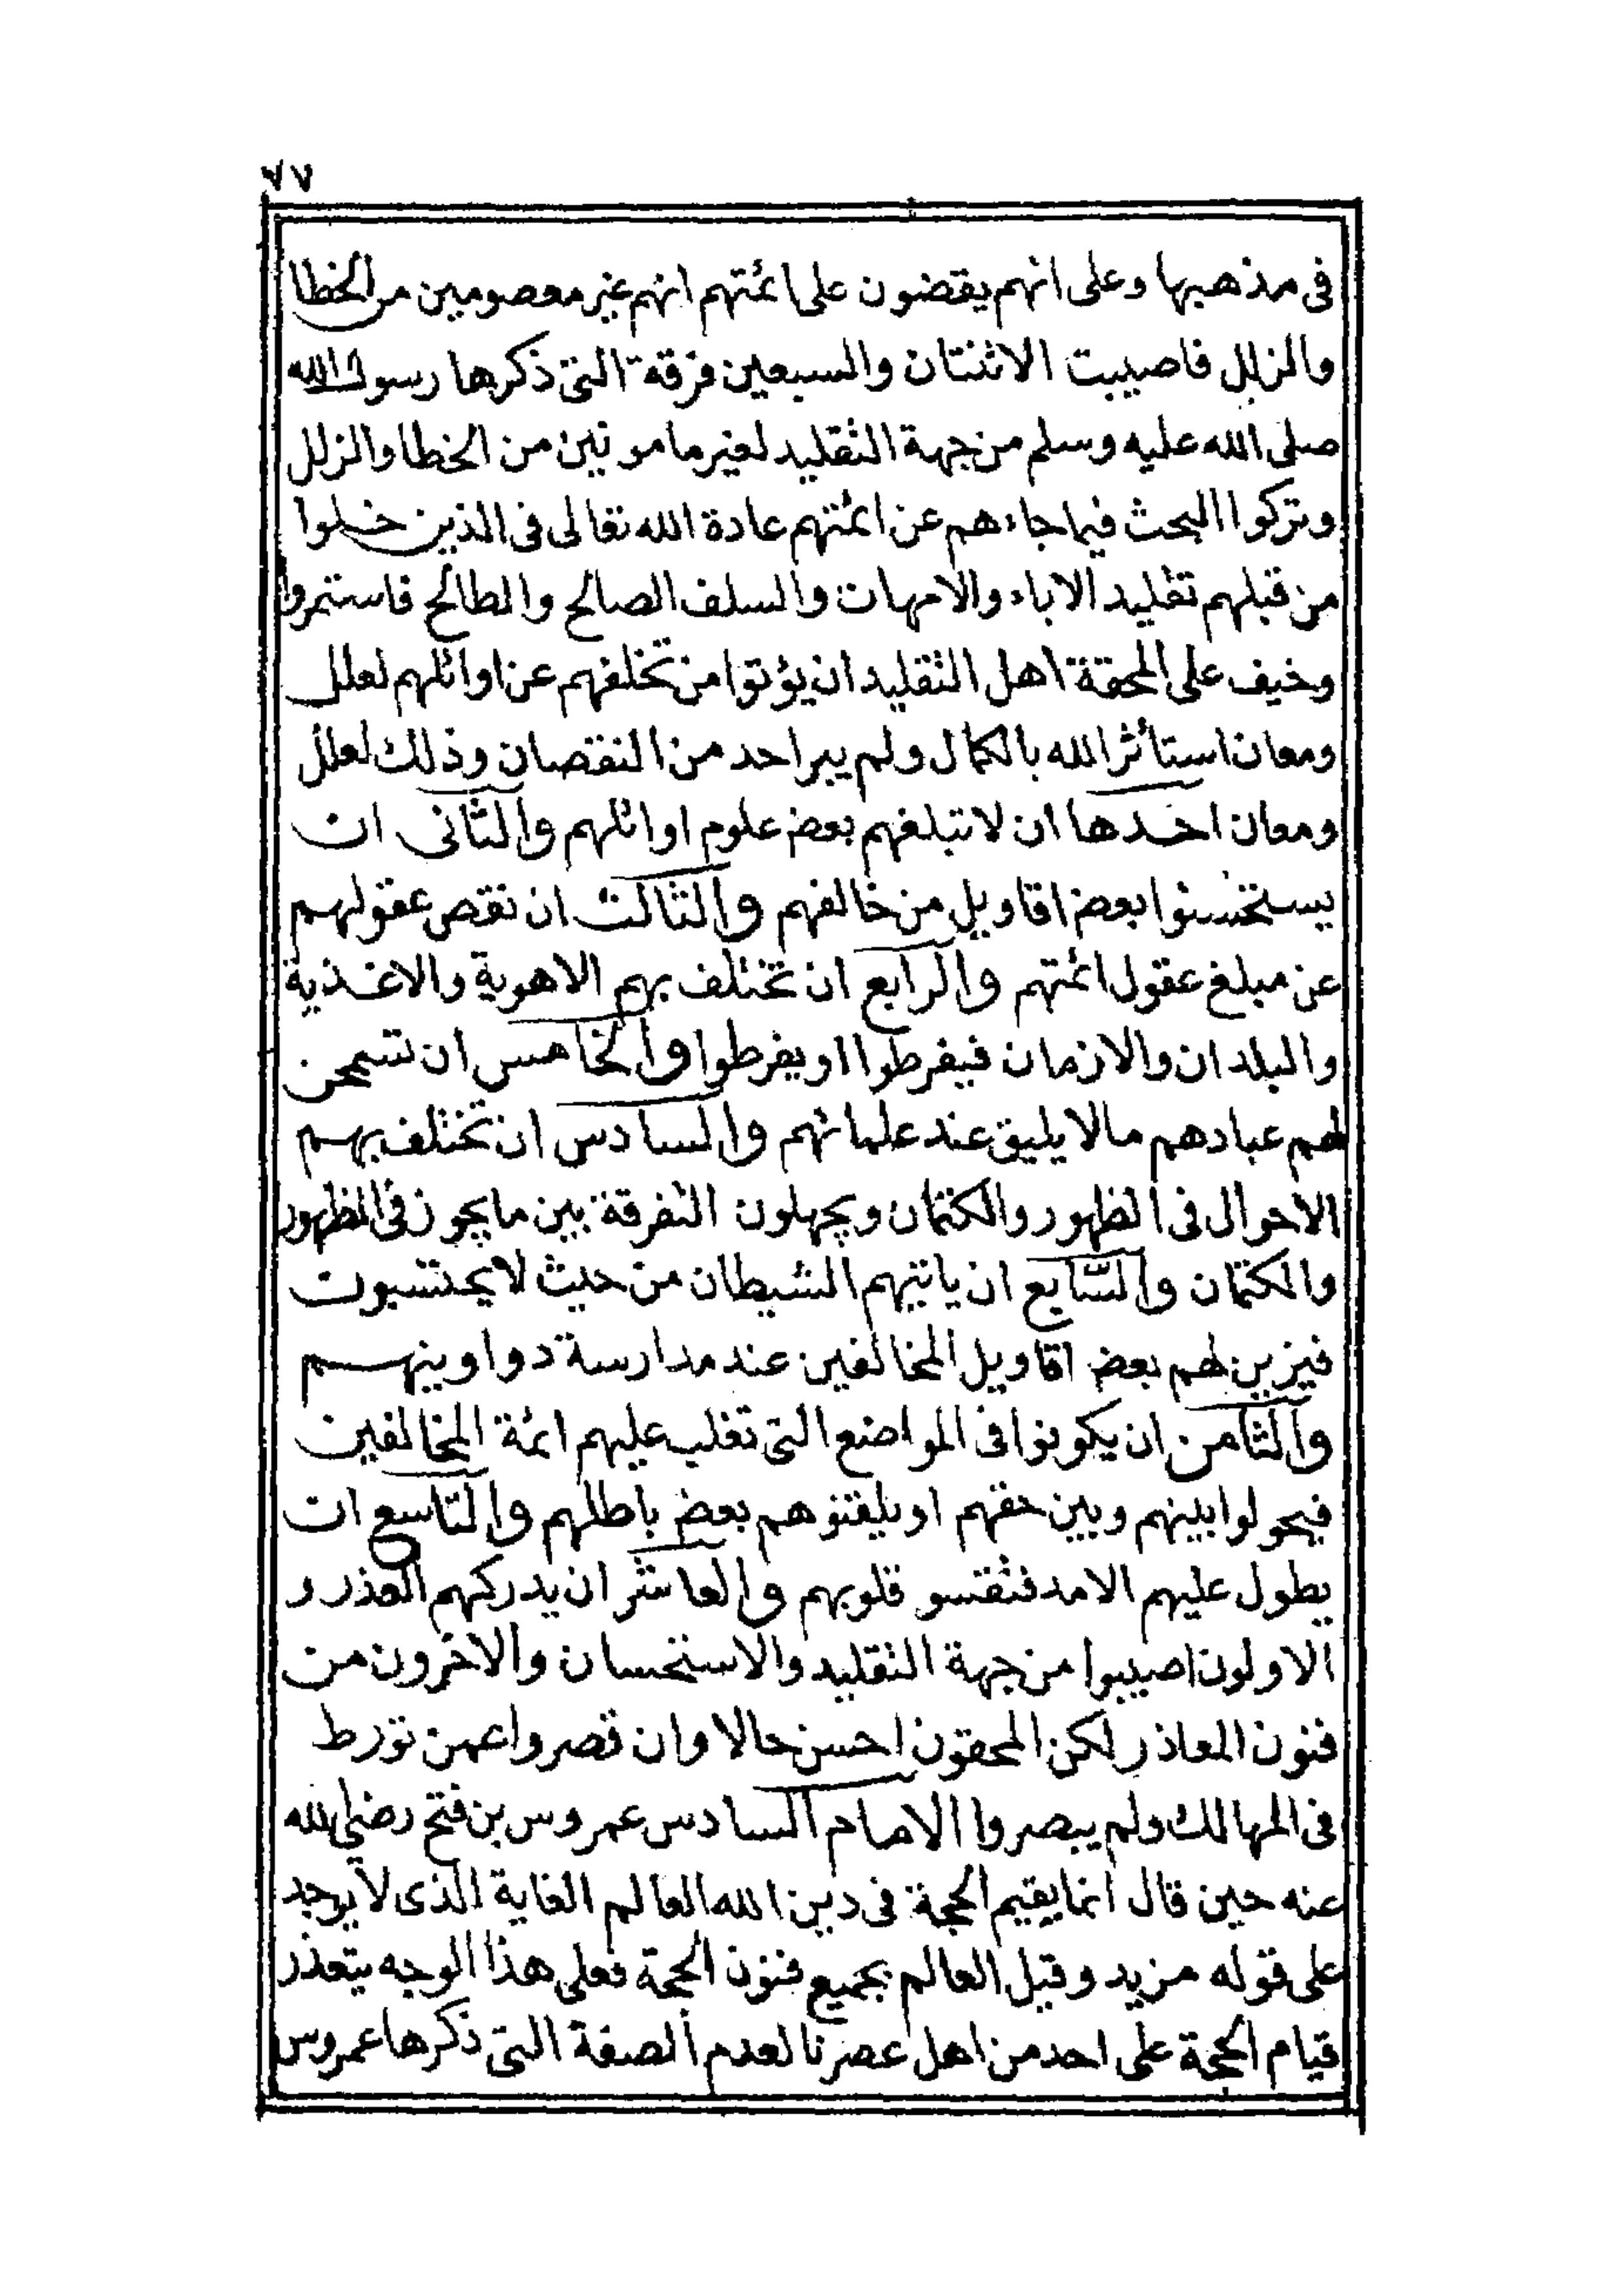 ٧٧
فى مذهبها وعلى انهم يقضون على ائمتهم انهم غير معصومين من الخطا
والزلل فاصيبت الاثنتان والسبعين فرقة التى ذكرها رسول الله
صلى الله عليه وسلم من جهة التقليد لغير مامونين من الخطا والزلل
وتركوا البحث فيما جاءهم عن ائمتهم عادة الله تعالى فى الذين خلوا
من قبلهم تقليد الاباء والامهات والسلف الصالح والطالح فاستمروا
وخيف على المحقة اهل التقليد ان يؤتوا من تخلفهم عن اوائلهم لعلل
ومعان استأثر الله بالكمال ولم يبر احد من النقصان وذلك لعلل
ومعان احدها ان لا تبلغهم بعض علوم اوائلهم والثانى ان
يستحسنوا بعض اقاويل من خالفهم والثالث ان نقص عقولهم
عن مبلغ عقول ائمتهم والرابع ان تختلف بهم الاهوية والاغذية
والبلدان والازمان فيفرطوا او يفرطوا والخامس ان تسمحن
لهم عبادهم مالا يليق عند علمائهم والسادس ان تختلف بهم
الاحوال فى الظهور والكتمان ويجهلون التفرقة بين ما يجوز فى الظهور
والكتمان والسّابع ان ياتيهم الشيطان من حيث لا يحتسبون
فيزين لهم بعض اقاويل المخالفين عند مدارسة دواوينهم
والثامن ان يكونوا فى المواضع التى تغلب عليهم ائمة المخالفين
فيحولوا بينهم وبين حقهم او يلقنوهم بعض باطلهم والتاسع ان
يطول عليهم الامد فتقسو قلوبهم والعاشر ان يدركهم العذر و
الاولون اصيبوا من جهة التقليد والاستحسان والاخرون من
فنون المعاذر لكن المحقون احسن حالا وان قصروا عمن تورط
فى المهالك ولم يبصروا الامام السادس عمروس بن فتح رضي الله
عنه حين قال انما يقيم الحجة فى دين الله العالم الغاية الذى لا يوجد
على قوله مزيد وقيل العالم بجميع فنون الحجة فعلى هذا الوجه يتعذر
قيام الحجة على احد من اهل عصرنا لعدم الصفة التى ذكرها عمروس